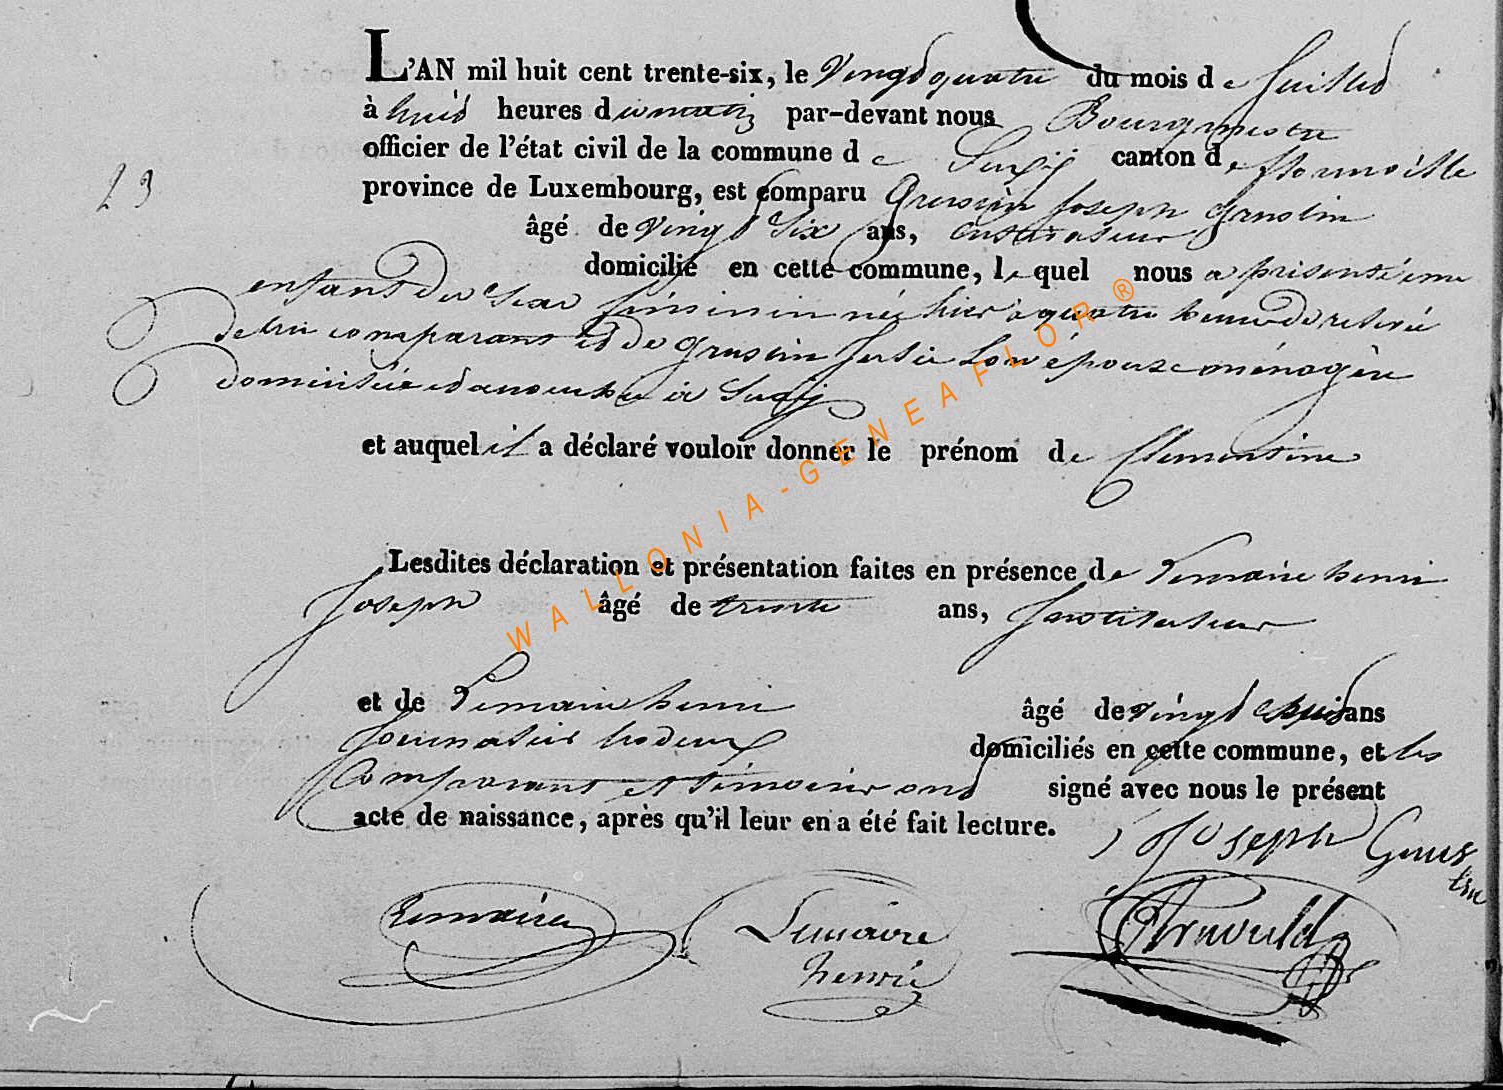 L'AN mil huit cent trente-six, le vingt quatre du mois de Juillet
à huit heures du matin par-devant nous Bourgmestre
officier de l'état civil de la commune de Suxÿ canton de florenville
23
province de Luxembourg, est comparu Joseph
âgé de vingt six ans, cultivateur
domicilié en cette commune, lequel nous a présenté une
enfant du sexe féminin née hier à quatre heures de relevée
de lui comparant et de son épouze ménagère
domiciliée et à Suxÿ
et auquel il a déclaré vouloir donner le prénom de Clementine
Lesdites déclaration et présentation faites en présence de Lemaire henri
Joseph âgé de trente ans, Instituteur
et de Lemaire henri âgé de vingt huit ans
Journalier domiciliés en cette commune, et les
Comparant et témoins ont signé avec nous le présent
acte de naissance, après qu'il leur en a été fait lecture.
Joseph
Lemaire
Lemaire
henri
WALLONIA-GENEAFLOR®